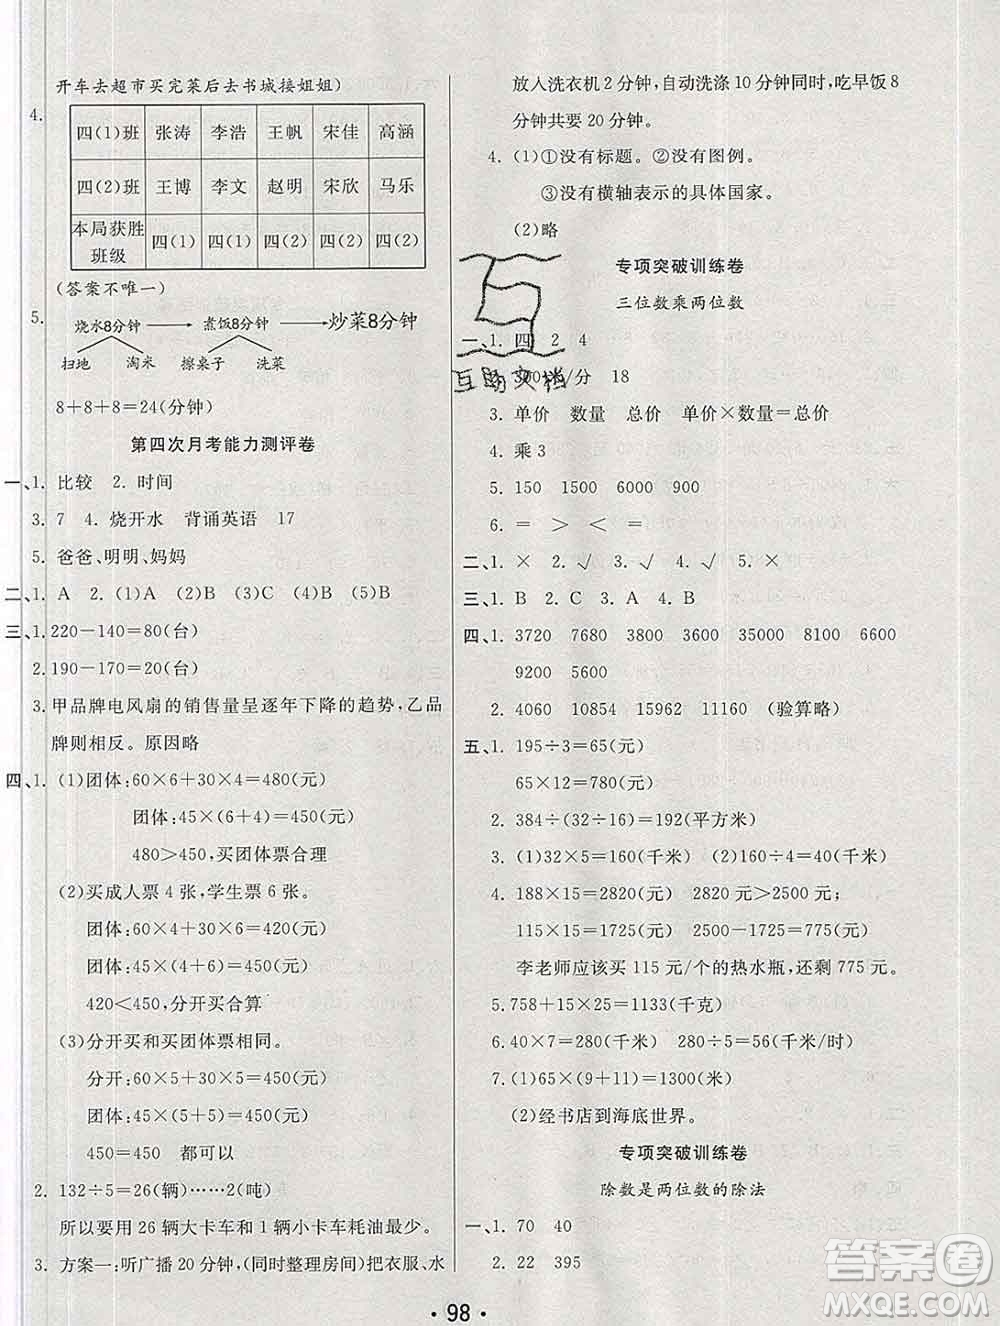 开车去超市买完菜后去书城接姐姐)
4.
四(1)班 张涛 李浩 王帆 宋佳 高涵
四(2)班 王博 李文 赵明 宋欣 马乐
本局获胜班级 四(1) 四(1) 四(2) 四(2) 四(2)
(答案不唯一)
5. 烧水8分钟 煮饭8分钟 炒菜8分钟
扫地 淘米 擦桌子 洗菜
8+8+8=24(分钟)
第四次月考能力测评卷
一、1. 比较 2. 时间
3. 7 4. 烧开水 背诵英语 17
5. 爸爸、明明、妈妈
二、1. A 2. (1)A (2)B (3)B (4)B (5)B
三、1. 220-140=80(台)
2. 190-170=20(台)
3. 甲品牌电风扇的销售量呈逐年下降的趋势,乙品
牌则相反。原因略
四、1. (1)团体:60×6+30×4=480(元)
团体:45×(6+4)=450(元)
480>450,买团体票合理
(2)买成人票 4 张,学生票 6 张。
团体:60×4+30×6=420(元)
团体:45×(4+6)=450(元)
420<450,分开买合算
(3)分开买和买团体票相同。
分开:60×5+30×5=450(元)
团体:45×(5+5)=450(元)
450=450 都可以
2. 132÷5=26(辆)……2(吨)
所以要用 26 辆大卡车和 1 辆小卡车耗油最少。
3. 方案一:听广播 20 分钟,(同时整理房间)把衣服、水
放入洗衣机 2 分钟,自动洗涤 10 分钟同时,吃早饭 8
分钟共要 20 分钟。
4. (1)①没有标题。②没有图例。
③没有横轴表示的具体国家。
(2)略
专项突破训练卷
三位数乘两位数
一、1. 四 2 4
互助文档
/分 18
3. 单价 数量 总价 单价×数量=总价
4. 乘 3
5. 150 1500 6000 900
6. = > < =
二、1. × 2. √ 3. √ 4. √ 5. ×
三、1. B 2. C 3. A 4. B
四、1. 3720 7680 3800 3600 35000 8100 6600
9200 5600
2. 4060 10854 15962 11160 (验算略)
五、1. 195÷3=65(元)
65×12=780(元)
2. 384÷(32÷16)=192(平方米)
3. (1)32×5=160(千米) (2)480(千米)
4. 188×15=2820(元) 2820元>2500(元)
115×15=1725(元) 2500-1725=775(元)
李老师应该买 115 元/个的热水瓶,还剩 775 元。
5. 758+15×25=1133(千克)
6. 40×7=280(千米) 280÷5=56(千米/时)
7. (1)65×(9+11)=1300(米)
(2)经书店到海底世界。
专项突破训练卷
除数是两位数的除法
一、1. 70 40
2. 22 395
· 98 ·
答案圈
MXQE.COM